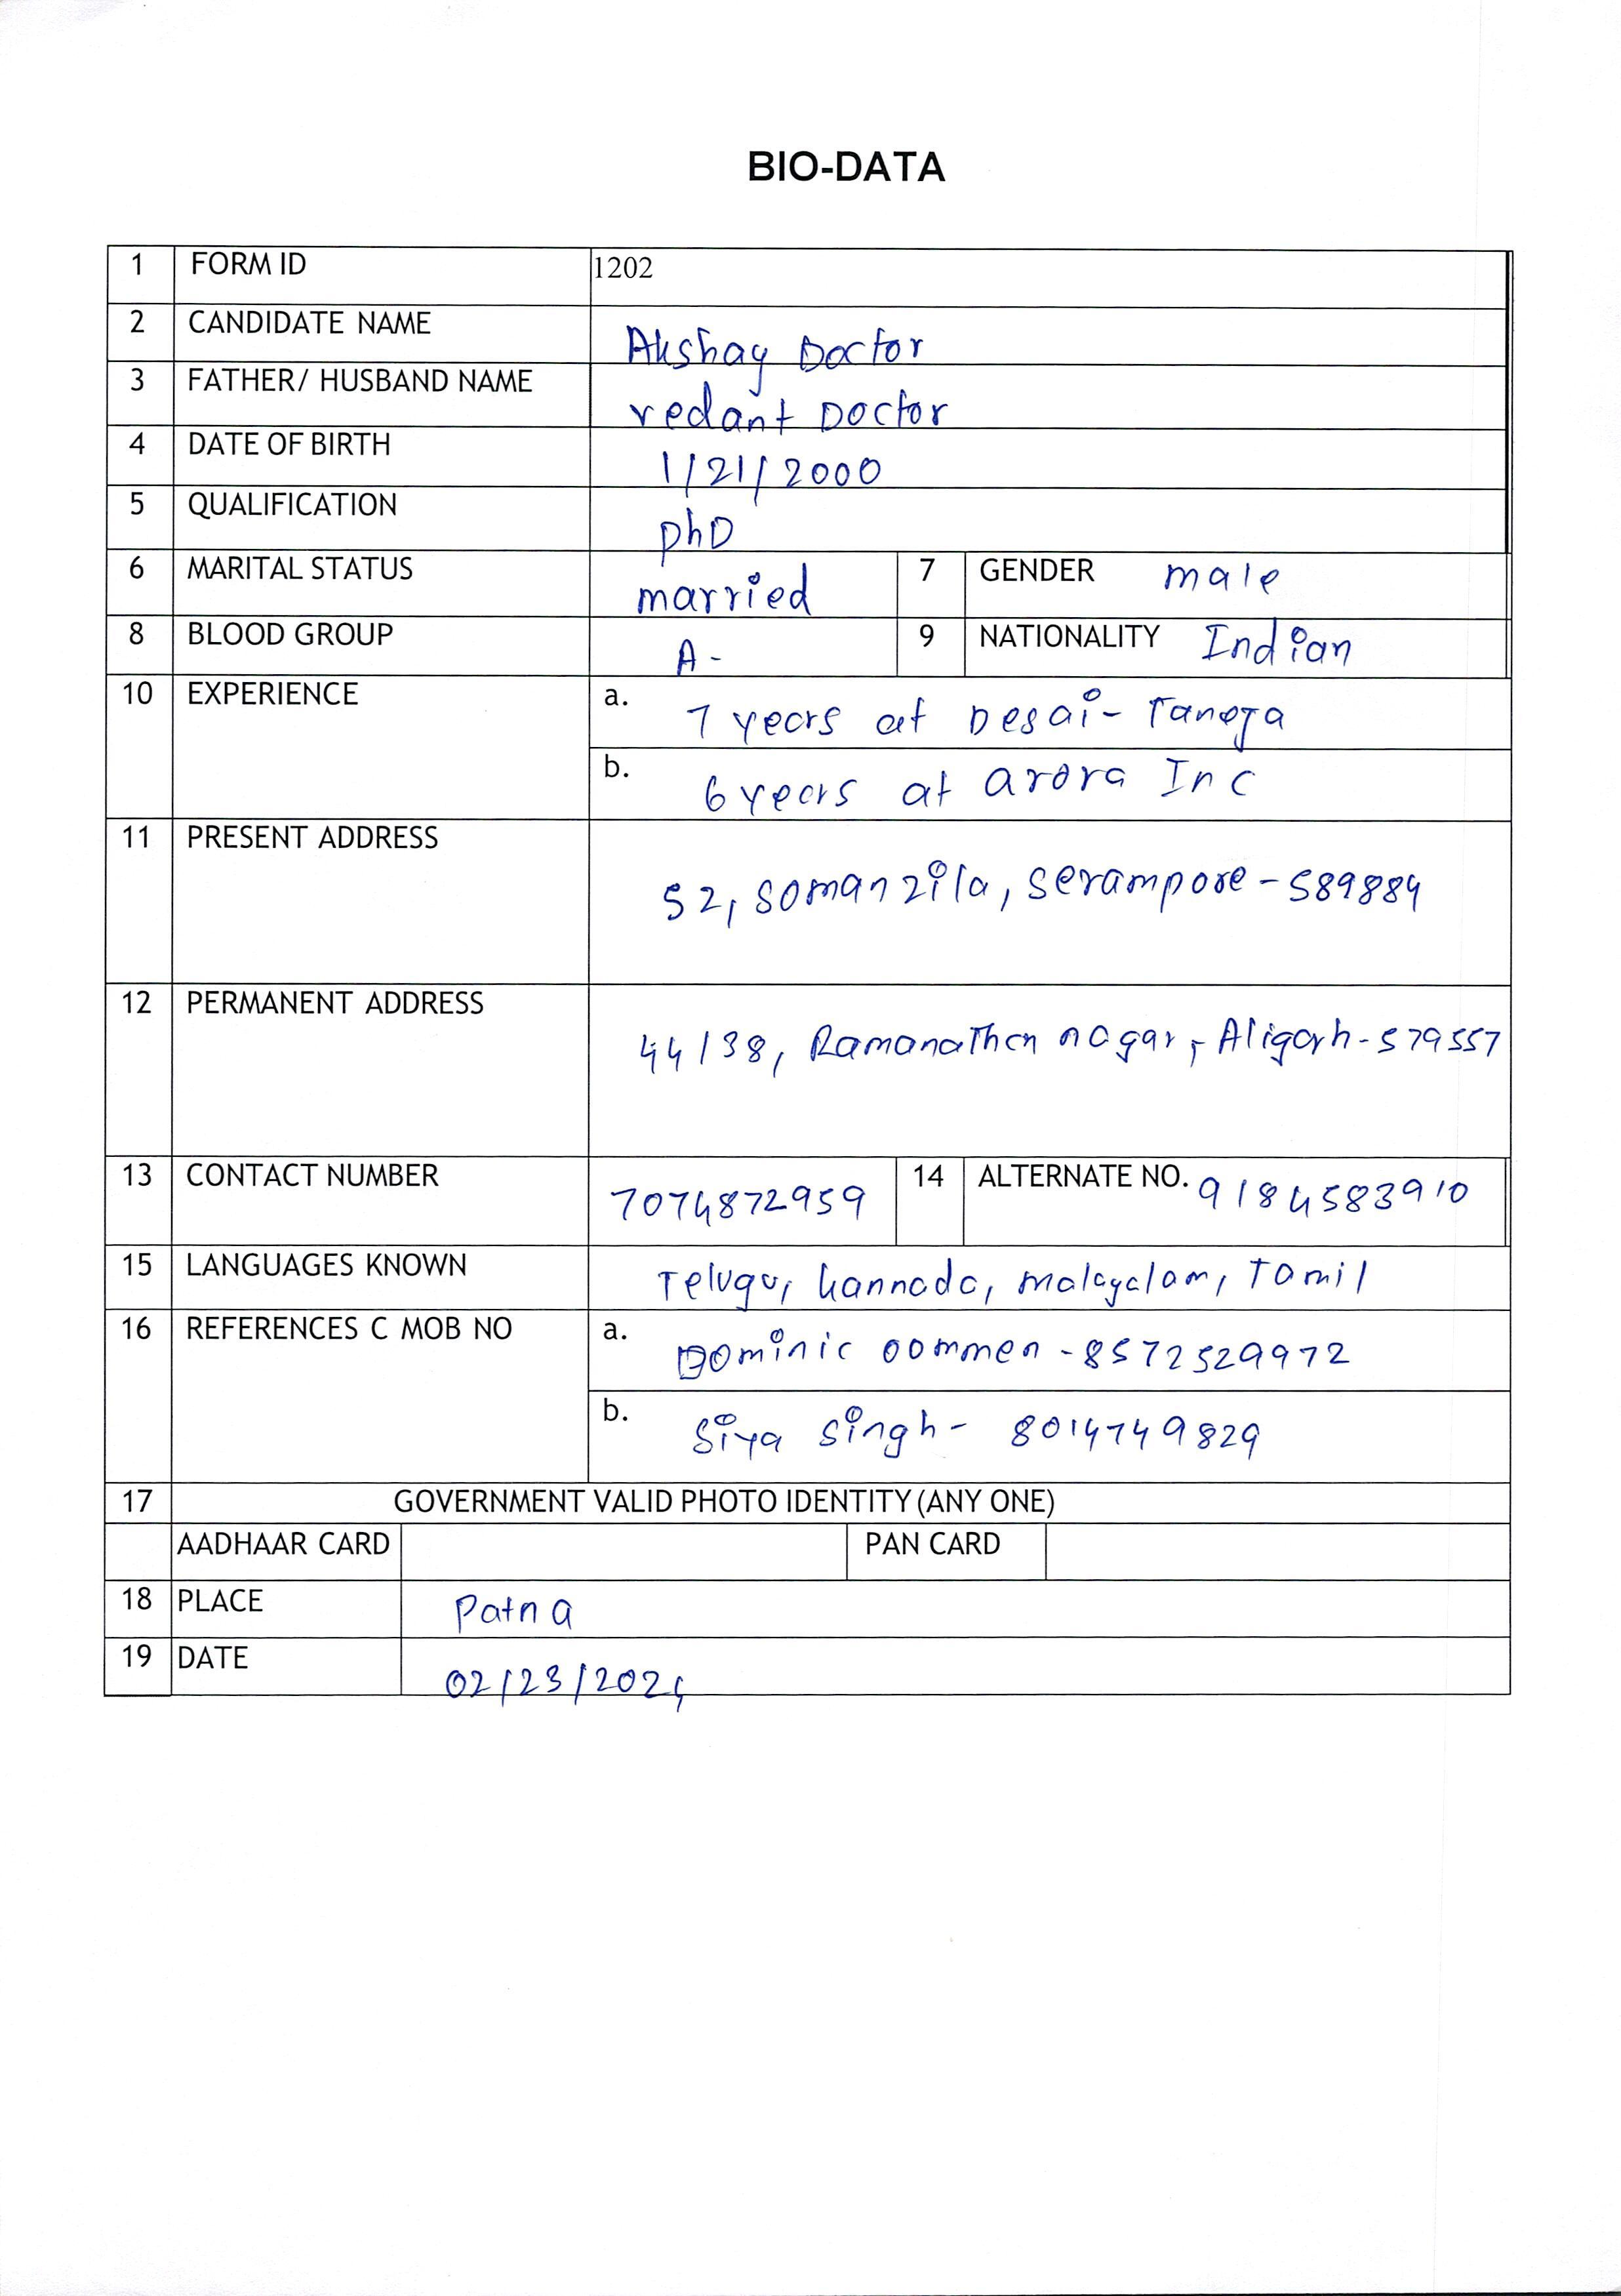 BIO-DATA
1 FORM ID 1202
2 CANDIDATE NAME Akshay Doctor
3 FATHER/ HUSBAND NAME vedant Doctor
4 DATE OF BIRTH 1/21/2000
5 QUALIFICATION phD
6 MARITAL STATUS married 7 GENDER male
8 BLOOD GROUP A- 9 NATIONALITY Indian
10 EXPERIENCE a. 7 years at Desai-Taneja
b. 6 years at arora Inc
11 PRESENT ADDRESS 52, soman zila, serampore - 589884
12 PERMANENT ADDRESS 44/38, Ramanathan nagar, Aligarh-579557
13 CONTACT NUMBER 7074872959 14 ALTERNATE NO. 9184583910
15 LANGUAGES KNOWN Telugu, kannada, malayalam, Tamil
16 REFERENCES C MOB NO a. Dominic oommen - 8572529972
b. Siya singh - 8014749829
17 GOVERNMENT VALID PHOTO IDENTITY (ANY ONE)
AADHAAR CARD PAN CARD
18 PLACE Patna
19 DATE 02/23/2024